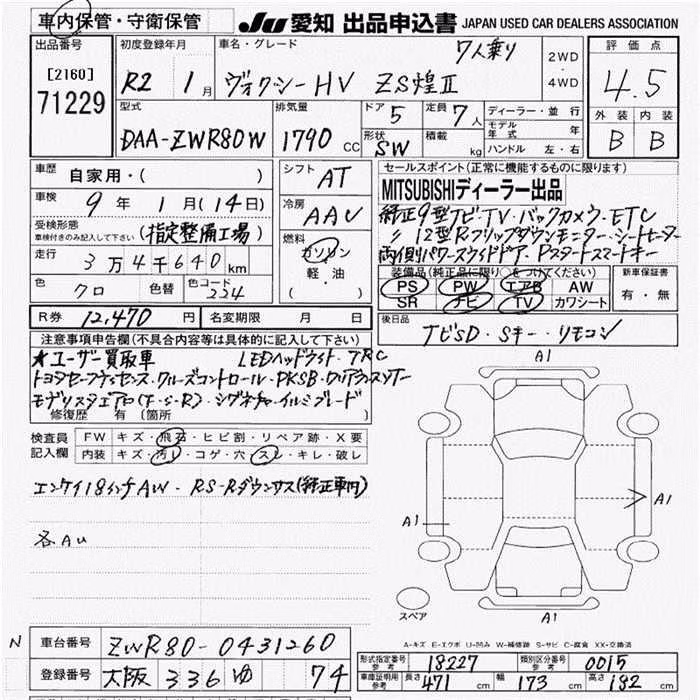 車内保管・守衛保管
JU 愛知 出品申込書 JAPAN USED CAR DEALERS ASSOCIATION
出品番号
[2160]
71229
初度登録年月
R2 1月
車名・グレード 7人乗り
ヴォクシーHV ZS煌Ⅱ
2WD
・
4WD
評価点
4.5
外装 内装
B B
型式
DAA-ZWR80W
排気量
1790 CC
ドア 5
定員 7人
形状 SW
積載 kg
ディーラー・並行
モデル年式 年
ハンドル 左・右
車歴 自家用・( )
車検 9年 1月(14日)
受検形態
車検付きのみ記入して下さい (指定整備工場)
走行 3万4千640km
色 クロ
色替
色コード 224
シフト AT
冷房 AAC
燃料
ガソリン
軽・油
( )
セールスポイント(正常に機能するものに限ります)
MITSUBISHIディーラー出品
純正9型ナビ・TV・バックカメラ・ETC
〃 12型Rフリップダウンモニター・シートヒーター
両側パワースライドドア・Pスタートスマートキー
装備品(純正品に限り○をつけてください)
PS PW エアB AW
SR ナビ TV カワシート
新車保証書
有・無
R券 12,470円
名変期限 月 日
後日品
ナビSD・Sキー・リモコン
注意事項申告欄(不具合内容等は具体的に記入して下さい)
★ユーザー買取車 LEDヘッドライト・TRC
トヨタセーフティセンス・クルーズコントロール・PKSB・クリアランスソナー
モデリスタエアロ(F・S・R)・シグネチャーイルミブレード
修復歴 有 〔箇所
検査員
記入欄
FW キズ・飛石・ヒビ割・リペア跡・X要
内装 キズ・汚レ・コゲ・穴・スレ・キレ・破レ
エンケイ18インチAW・RS-Rダウンサス(純正車内)
各AU
A1
A1
A1
A1
スペア
A-キズ E-エクボ U-凹み W-補修跡 S-サビ C-腐食 XX-交換済
N
車台番号 ZWR80-0431260
登録番号 大阪 336 ゆ 74
形式指定番号
参考 18227
類別区分番号
参考 0015
車庫証明用
参考 長さ 471 cm 幅 173 cm 高さ 182 cm